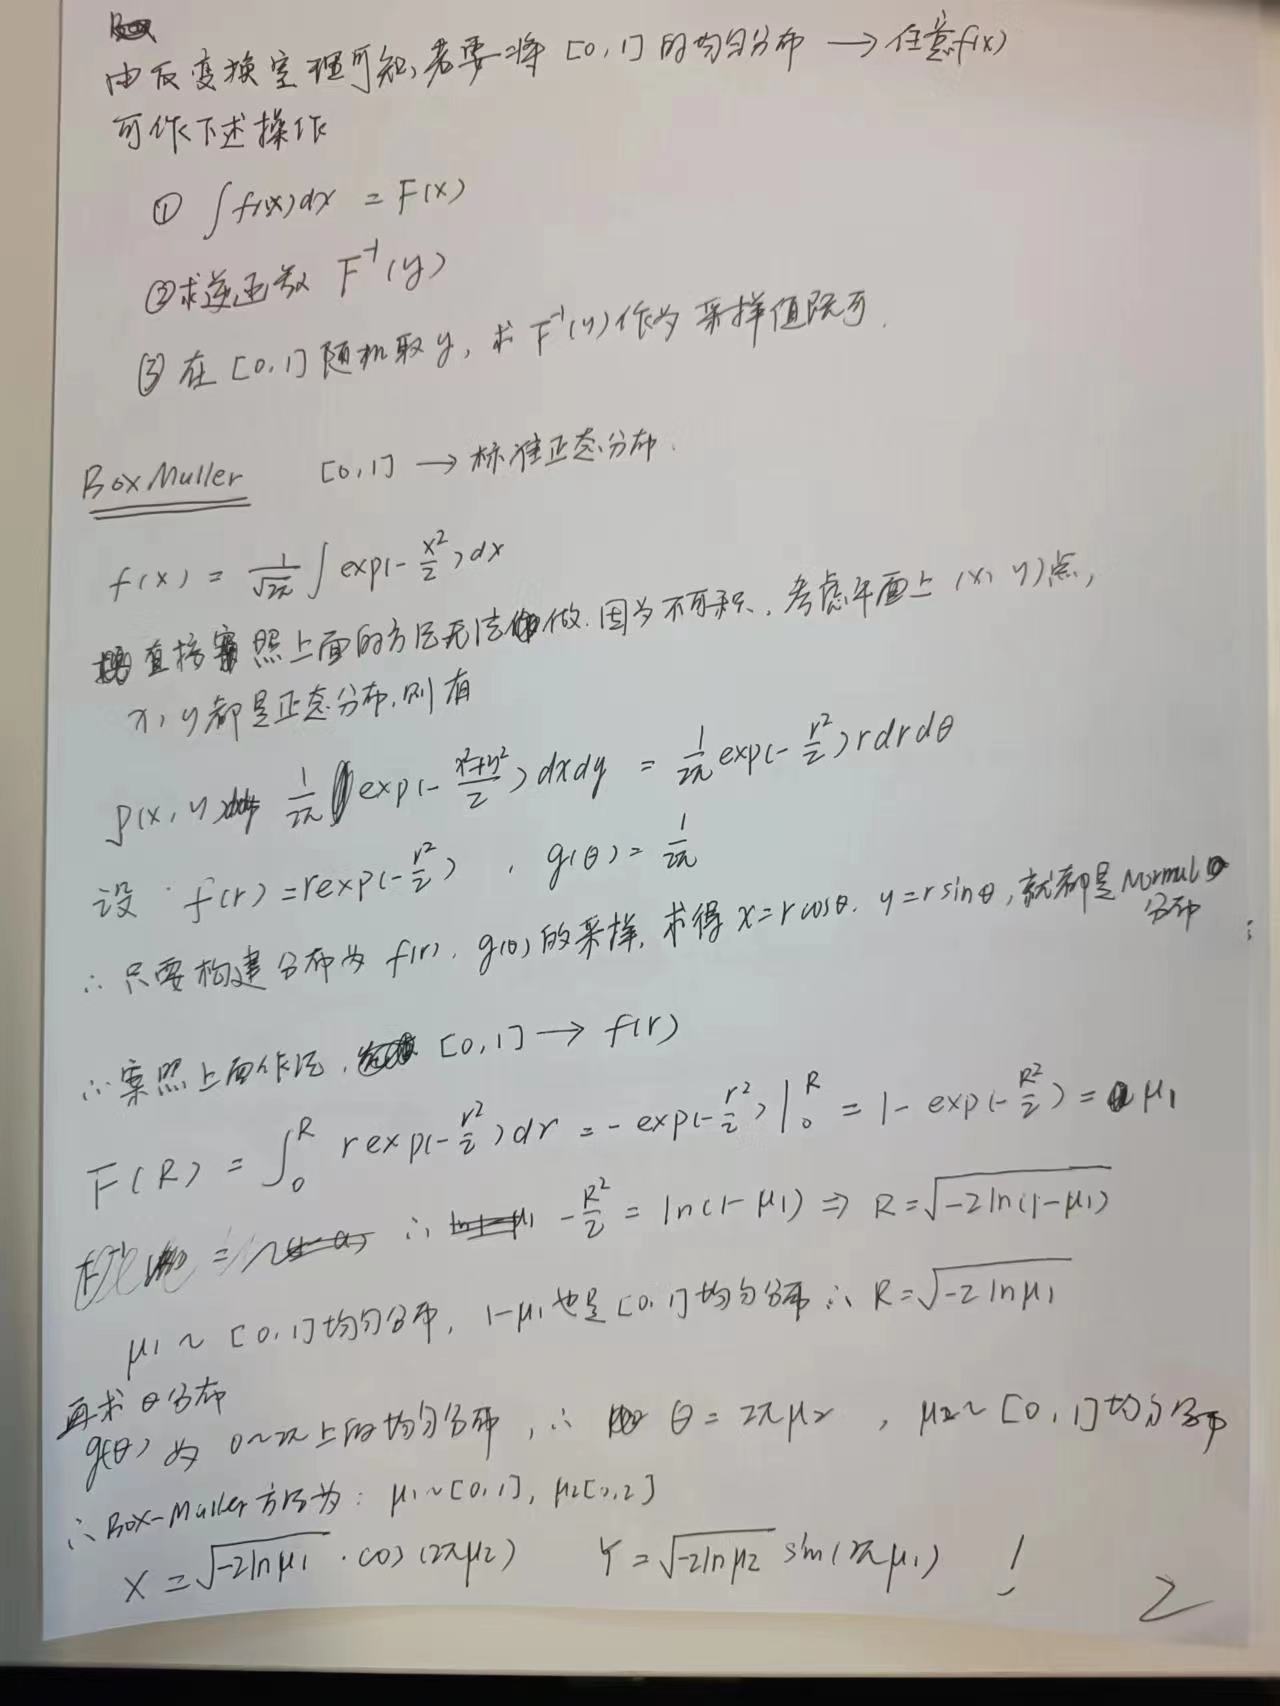 由反变换定理可知,若要将 [0,1] 的均匀分布 → 任意f(x)
可作下述操作
① ∫f(x)dx = F(x)
②求逆函数 F⁻¹(y)
③ 在 [0,1] 随机取y, 求 F⁻¹(y)作为 采样值既可.
Box Muller [0,1] → 标准正态分布.
f(x) = 1/√2π ∫ exp(-x²/2)dx
直接 照上面的方法无法做.因为不可积. 考虑平面上 (x, y)点,
x, y都是正态分布,则有
p(x,y) 1/2π exp(-x²+y²/2)dxdy = 1/2π exp(-r²/2)rdrdθ
设 f(r) = rexp(-r²/2) , g(θ) = 1/2π
∴ 只要构建分布为 f(r), g(θ)的采样, 求得 x=rcosθ. y=rsinθ,就都是Normal
分布
∴案照上面作法, [0,1] → f(r)
F(R) = ∫₀ᴿ rexp(-r²/2)dr = -exp(-r²/2)|₀ᴿ = 1-exp(-R²/2) = μ₁
∴ -R²/2 = ln(1-μ₁) ⇒ R=√-2ln(1-μ₁)
μ₁ ~ [0,1]均匀分布, 1-μ₁也是[0,1]均匀分布∴ R=√-2lnμ₁
再求 θ分布
g(θ) 为 0~2π上的均匀分布, ∴ θ = 2πμ₂ , μ₂~[0,1]均匀分布
∴ Box-Muller方法为: μ₁~[0,1], μ₂[0,2]
X = √-2lnμ₁ · cos(2πμ₂) Y = √-2lnμ₂ sin(2πμ₁) !
2